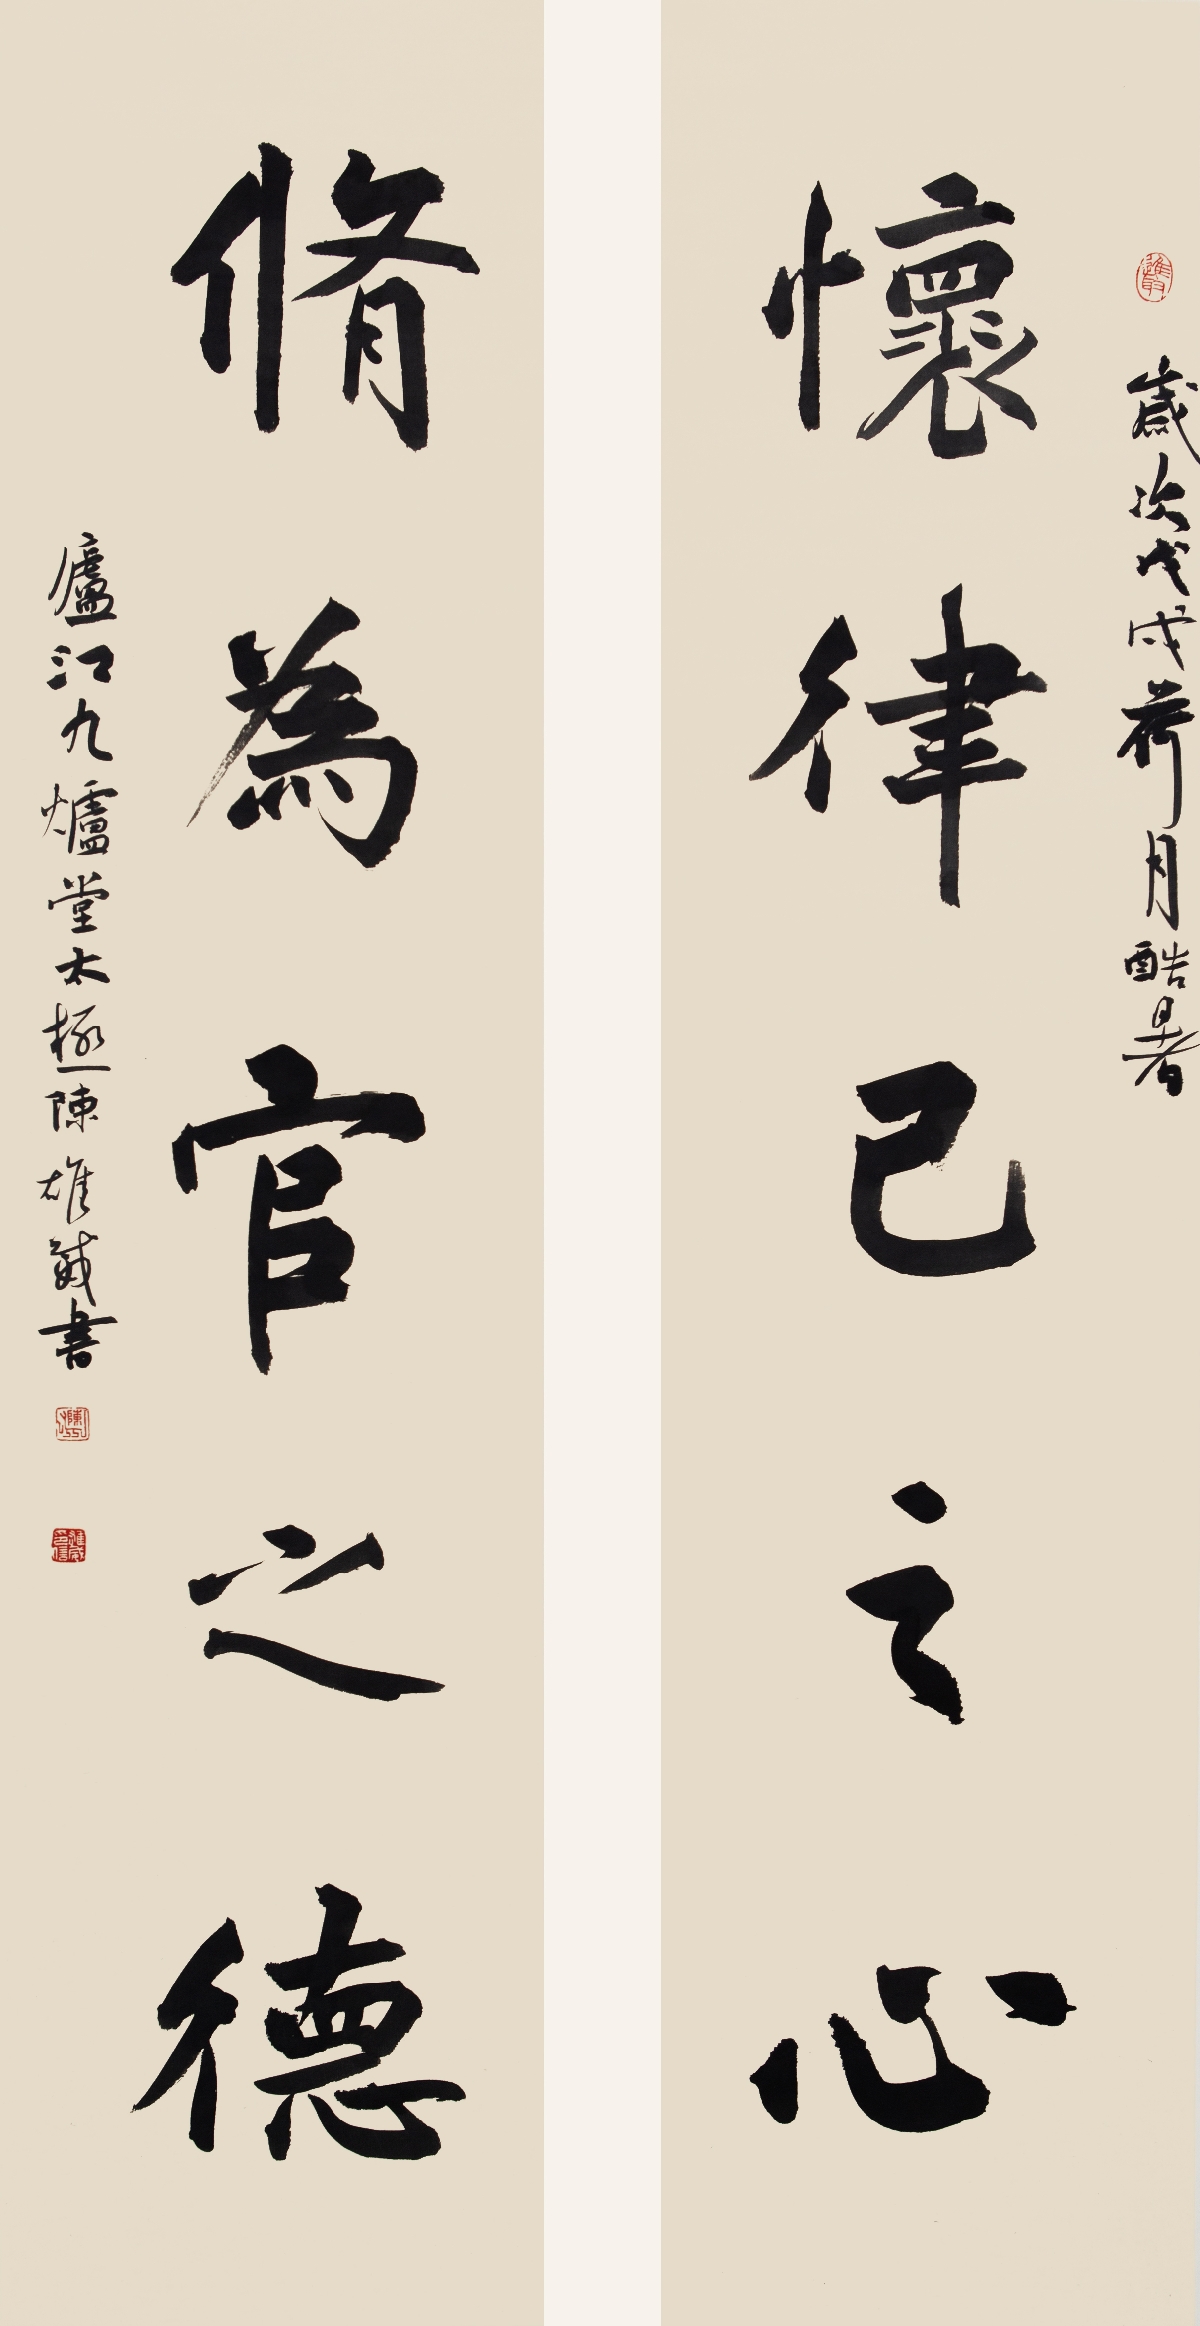 歲次戊戌荷月酷暑
懷律己之心
脩為官之德
廬江九爐堂太極陳雄武書